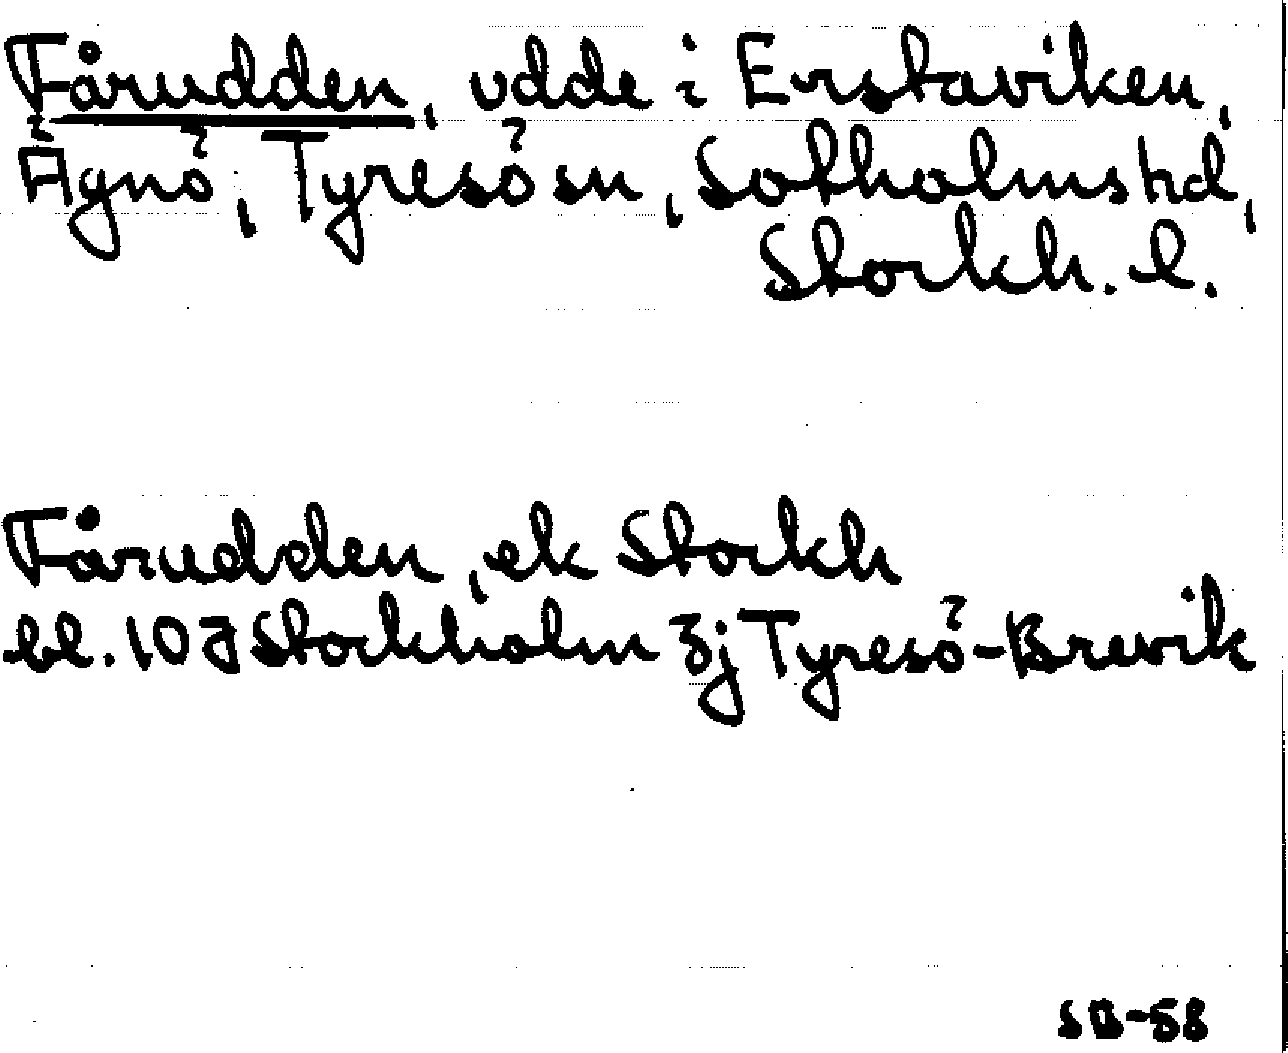 Fårudden, udde i Erstaviken,
Ägnö, Tyresö sn, Sotholms hd,
Stockh. l.
Fårudden, ek Stockh
bl. 10 J Stockholm 3j Tyresö-Brevik
SB-58